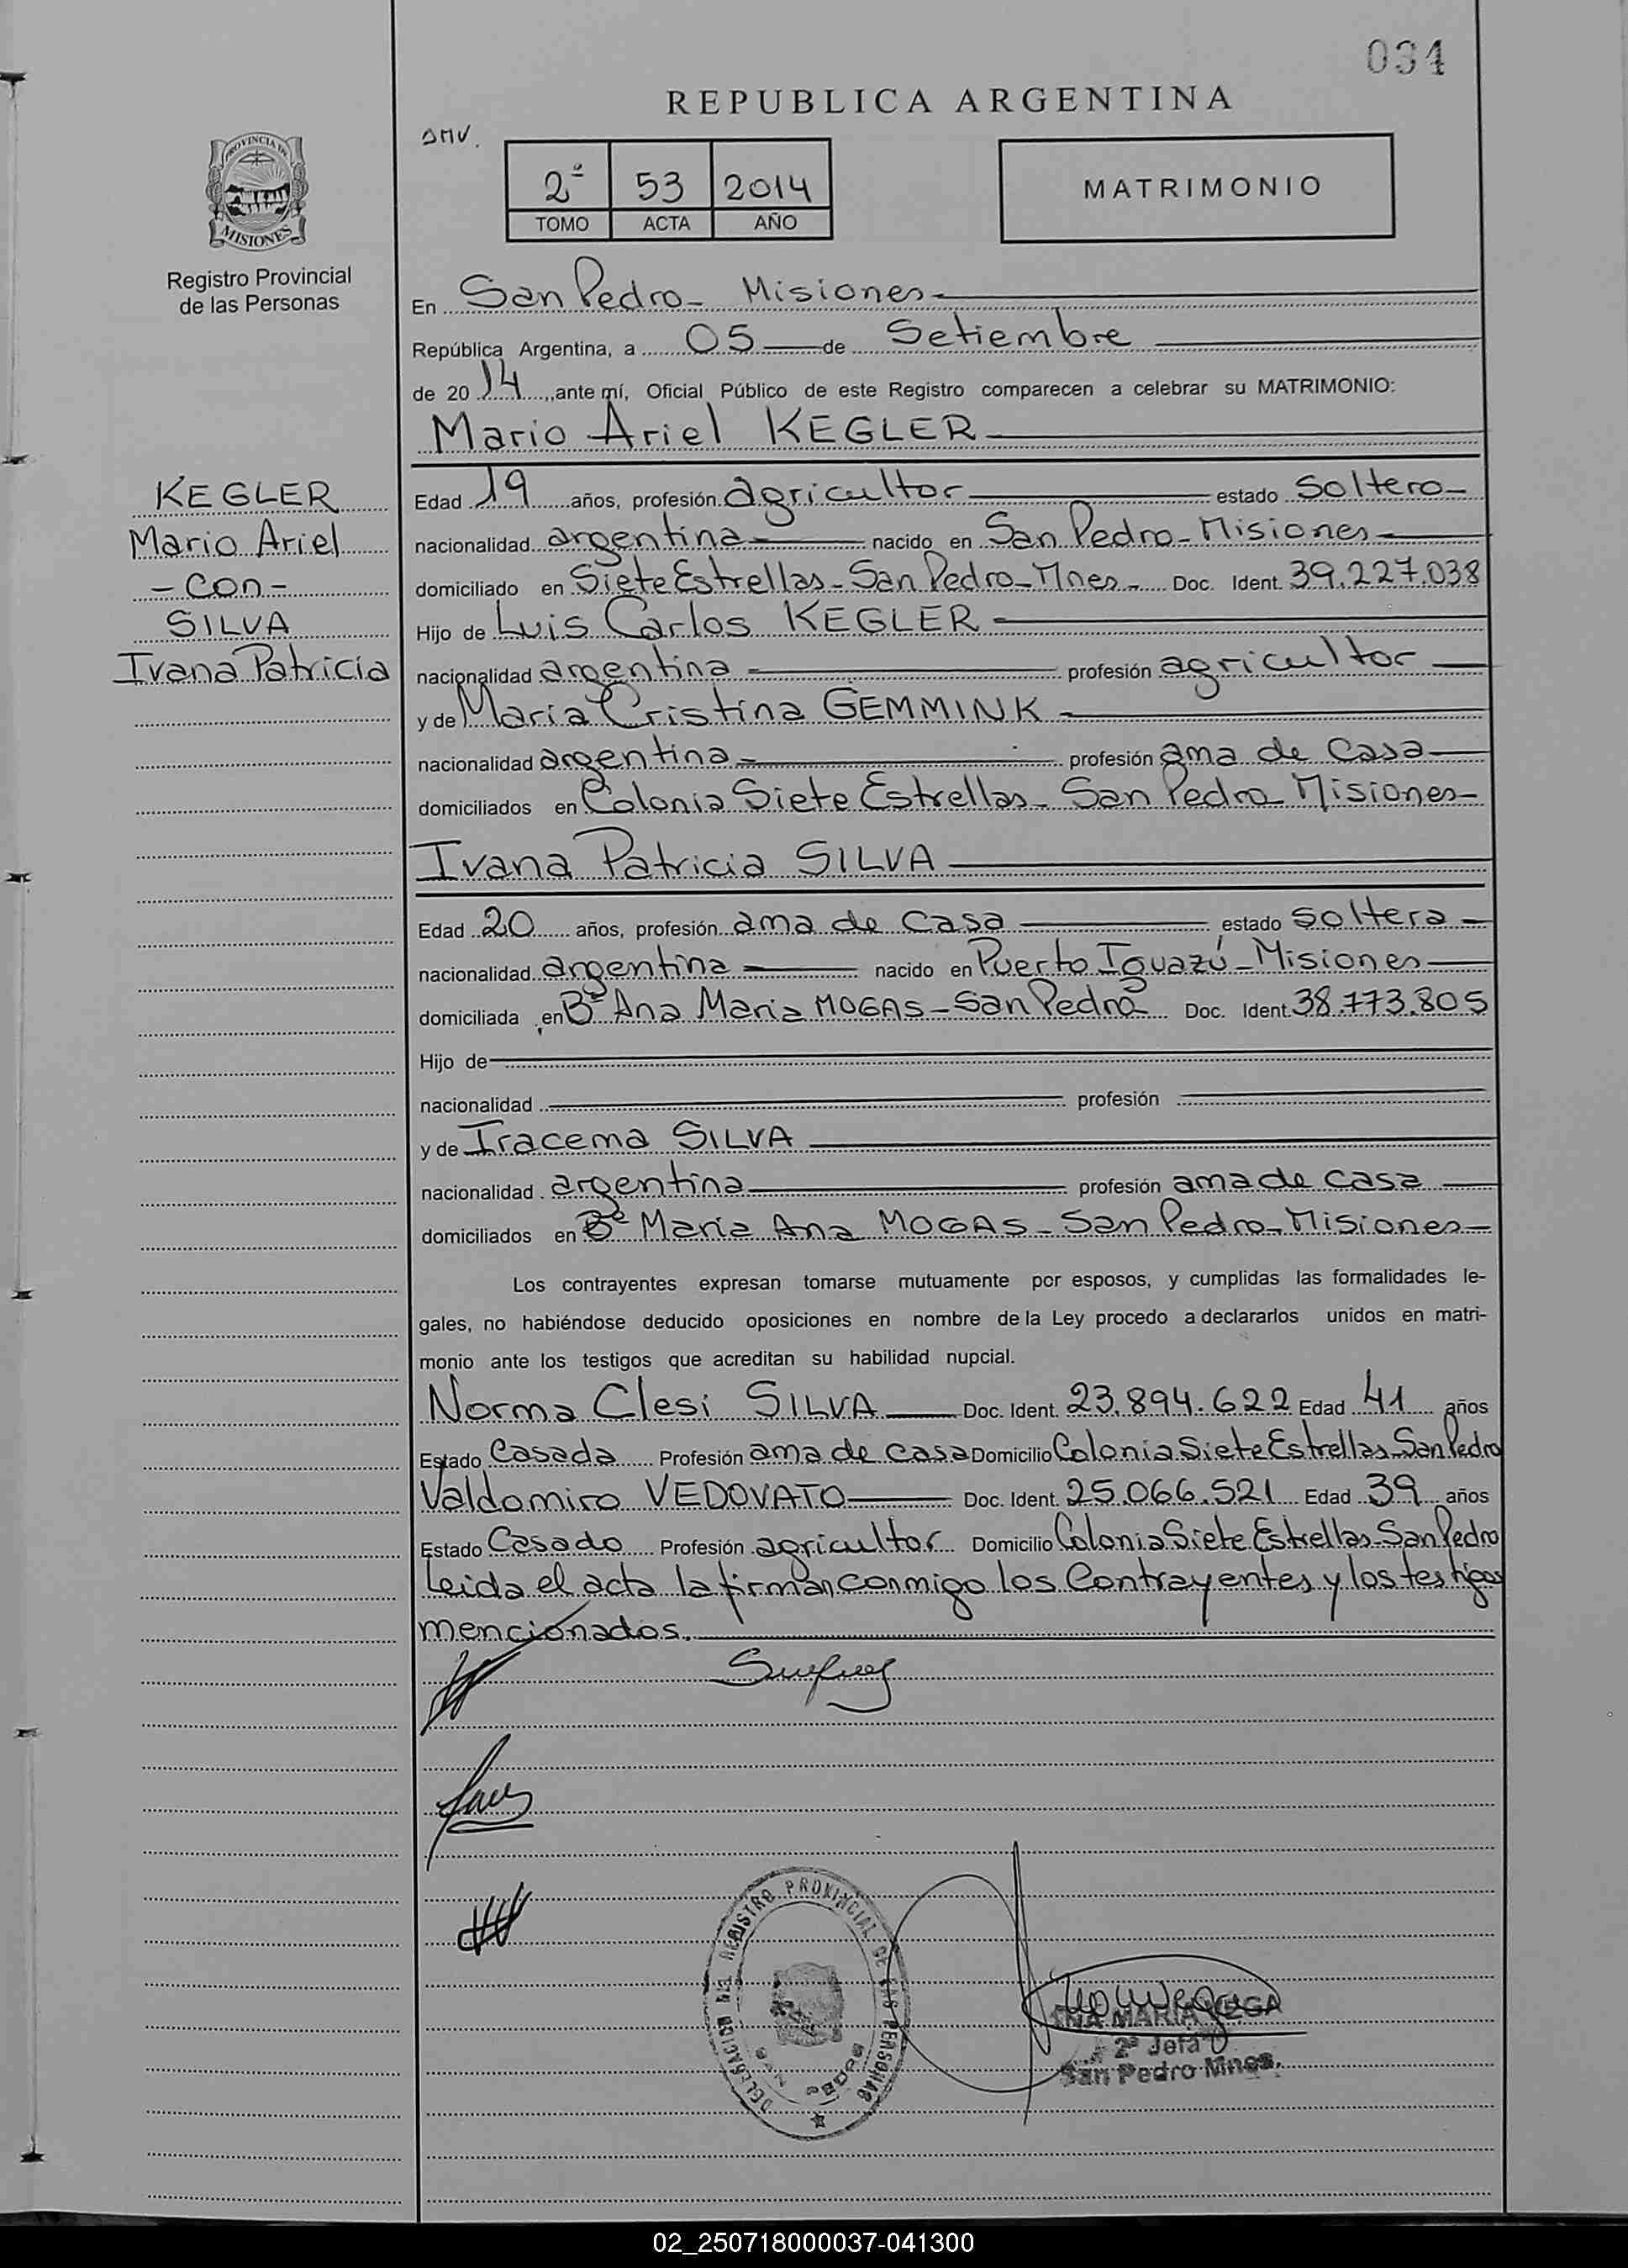 034
REPUBLICA ARGENTINA
PROVINCIA DE
MISIONES
Registro Provincial
de las Personas
2ª 53 2014
TOMO ACTA AÑO
MATRIMONIO
En San Pedro - Misiones
República Argentina, a 05 de Setiembre
de 20 14, ante mí, Oficial Público de este Registro comparecen a celebrar su MATRIMONIO:
Mario Ariel KEGLER
KEGLER
Mario Ariel
- Con -
SILVA
Ivana Patricia
Edad 19 años, profesión agricultor estado soltero
nacionalidad argentina nacido en San Pedro - Misiones
domiciliado en Siete Estrellas - San Pedro - Mnes - Doc. Ident. 39.227.038
Hijo de Luis Carlos KEGLER
nacionalidad argentina profesión agricultor
y de Maria Cristina GEMMINK
nacionalidad argentina profesión ama de casa
domiciliados en Colonia Siete Estrellas - San Pedro Misiones
Ivana Patricia SILVA
Edad 20 años, profesión ama de casa estado soltera
nacionalidad argentina nacido en Puerto Iguazú - Misiones
domiciliada en Bº Ana Maria MOGAS - San Pedro Doc. Ident. 38.773.805
Hijo de
nacionalidad profesión
y de Iracema SILVA
nacionalidad argentina profesión ama de casa
domiciliados en Bº Maria Ana MOGAS - San Pedro - Misiones
Los contrayentes expresan tomarse mutuamente por esposos, y cumplidas las formalidades le-
gales, no habiéndose deducido oposiciones en nombre de la Ley procedo a declararlos unidos en matri-
monio ante los testigos que acreditan su habilidad nupcial.
Norma Clesi SILVA Doc. Ident. 23.894.622 Edad 41 años
Estado Casada Profesión ama de casa Domicilio Colonia Siete Estrellas San Pedro
Valdomiro VEDOVATO Doc. Ident. 25.066.521 Edad 39 años
Estado Casado Profesión agricultor Domicilio Colonia Siete Estrellas San Pedro
Leida el acta la firman conmigo los Contrayentes y los testigos
mencionados.
DELEGACION DEL REGISTRO PROVINCIAL DE LAS PERSONAS
SAN PEDRO
ANA MARIA VEGA
2ª Jefa
San Pedro Mnes.
02_250718000037-041300